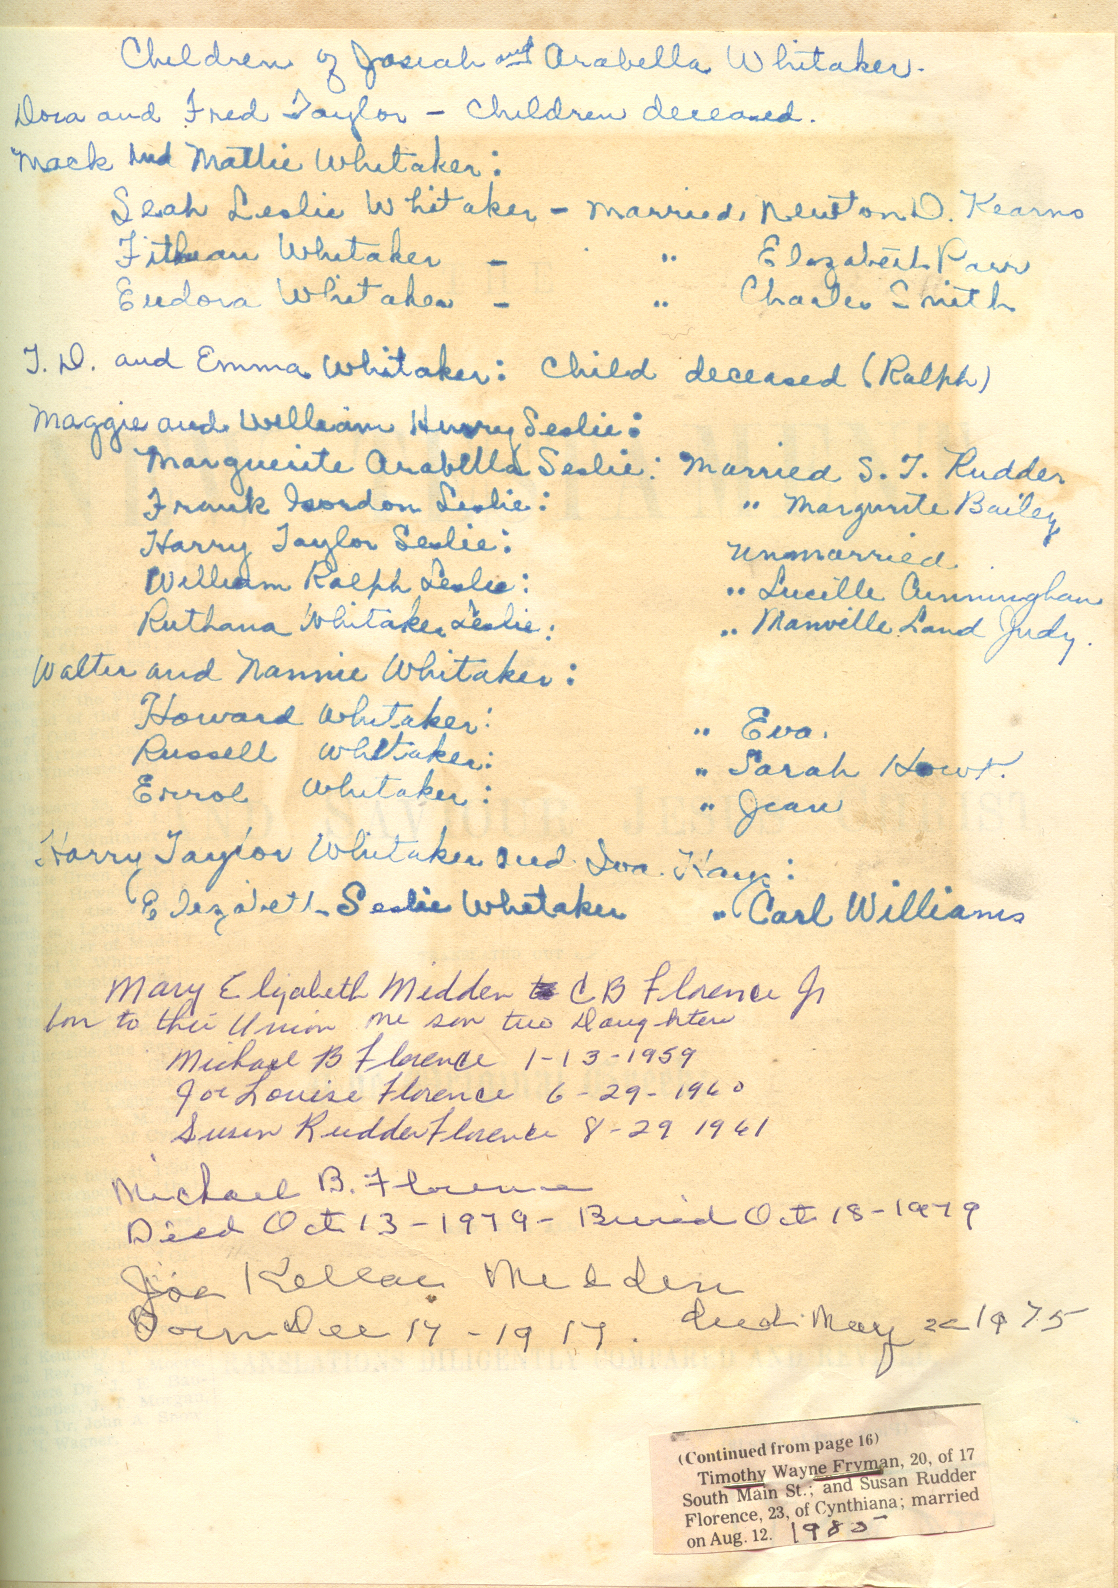 Children of Josiah and Arabella Whitaker.
Dora and Fred Taylor - Children deceased.
Mack and Mattie Whitaker:
Leah Leslie Whitaker - Married Newton D. Kearns
Fithean Whitaker - " Elizabeth Parr
Eudora Whitaker - " Charles Smith
T. D. and Emma Whitaker: Child deceased (Ralph)
Maggie and William Henry Leslie:
Marguerite Arabella Leslie: Married S. T. Rudder
Frank Gordon Leslie: " Margurite Bailey
Harry Taylor Leslie: Unmarried
William Ralph Leslie: " Lucille Cunningham
Ruthana Whitaker Leslie: " Manville Land Judy.
Walter and Nannie Whitaker:
Howard Whitaker: " Eva.
Russell Whitaker: " Sarah
Errol Whitaker: " Jean
Harry Taylor Whitaker and Iva Kay:
Elizabeth Leslie Whitaker " Carl Williams
Mary Elizabeth Medden to C B Florence Jr
to this Union one son two Daughters
Michael B Florence 1-13-1959
Joe Louise Florence 6-29-1960
Susan Rudder Florence 8-29 1961
Michael B. Florence
Died Oct 13-1979- Buried Oct 18-1979
Joe Kellar Medden
Born Dec 17-1917. died May 1975
(Continued from page 16)
Timothy Wayne Fryman, 20, of 17
South Main St.; and Susan Rudder
Florence, 23, of Cynthiana; married
on Aug. 12. 1985